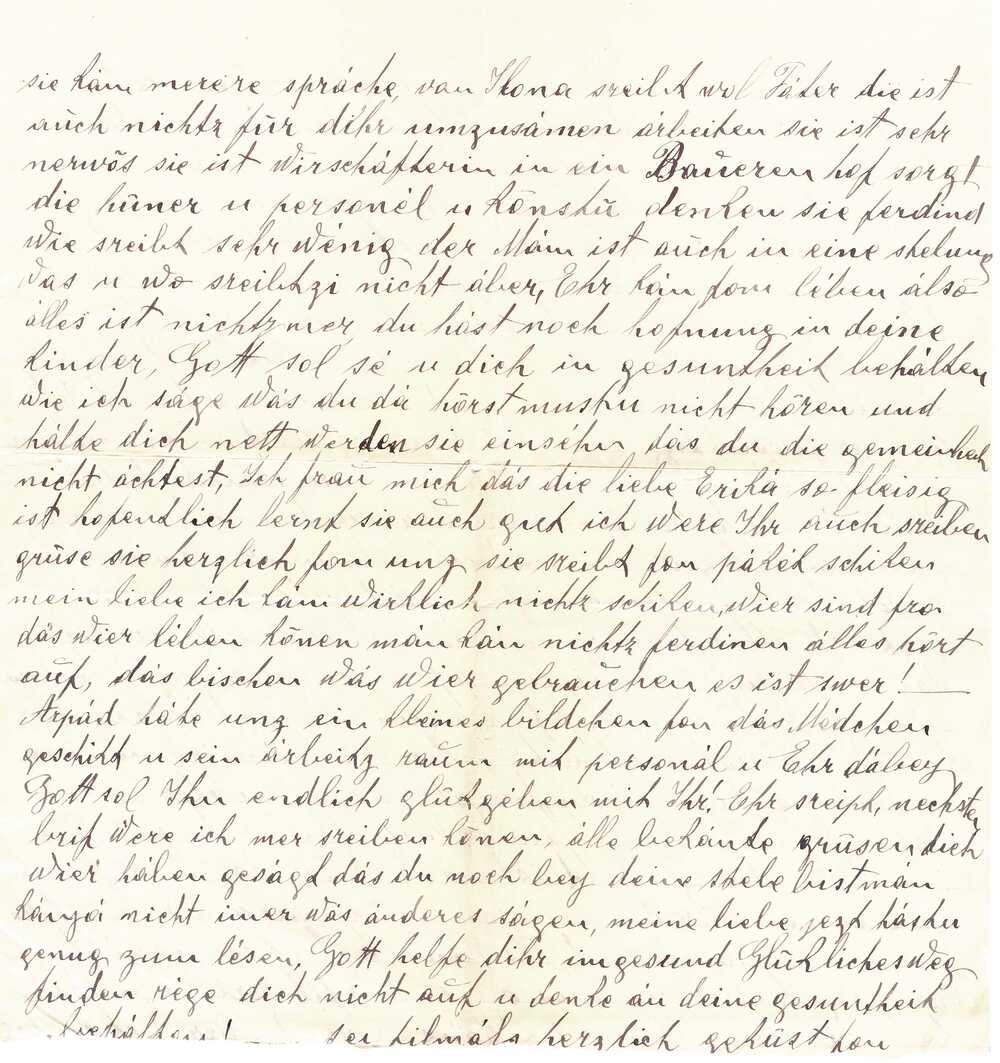 sie kán merere spráche, von Ilona sreibt wol Táter die ist
auch nichtz für dihr umzusámen árbeiten sie ist sehr
nerwös sie ist Wirscháfterin in ein Baueren hof sorgt
die hüner u personél u könstu denken sie ferdind
Wie sreibt sehr wénig der Mán ist auch in eine stelung
Was u wo sreibtzi nicht áber, Ehr kán fom lében álso
álles ist nichtz mer, du hást noch hofnung in deine
kinder, Gott sol sé u dich in gesuntheit behálten
wie ich ságe Wás du dá hörst mustu nicht hören und
hálte dich nett werden sie einséhn dás du die gemeinheit
nicht áchtest, Ich frau mich dás die liebe Eriká so fleisig
ist hofendlich lernt sie auch gut ich Were Ihr auch sreiben
grüse sie herzlich fom ung sie sreibt fon pákét schiken
mein liebe ich kán wirklich nichtz schiken, wier sind fro
dás wier lében könen mán kán nichtz ferdinen álles hört
auf, dás bischen Wás Wier gebrauchen es ist swer!
Arpád háte ung ein kleines bildchen fon dás Médchen
geschikt u sein árbeitz raum mit personál u Ehr dábey
Gott sol Ihn endlich glükgében mit Ihr! Ehr sreipt, nechsten
brif Were ich mer sreiben könen, álle bekánte grüsen dich
Wier háben geságt dás du noch bey deine stele bist mán
kányá nicht imer wás ánderes ságen, meine liebe jezt hástu
genug zum lésen, Gott helfe dihr im gesund Glükliches Wég
finden rége dich nicht auf u denke án deine gesuntheit
behálten! sei filmáls herzlich geküst fon